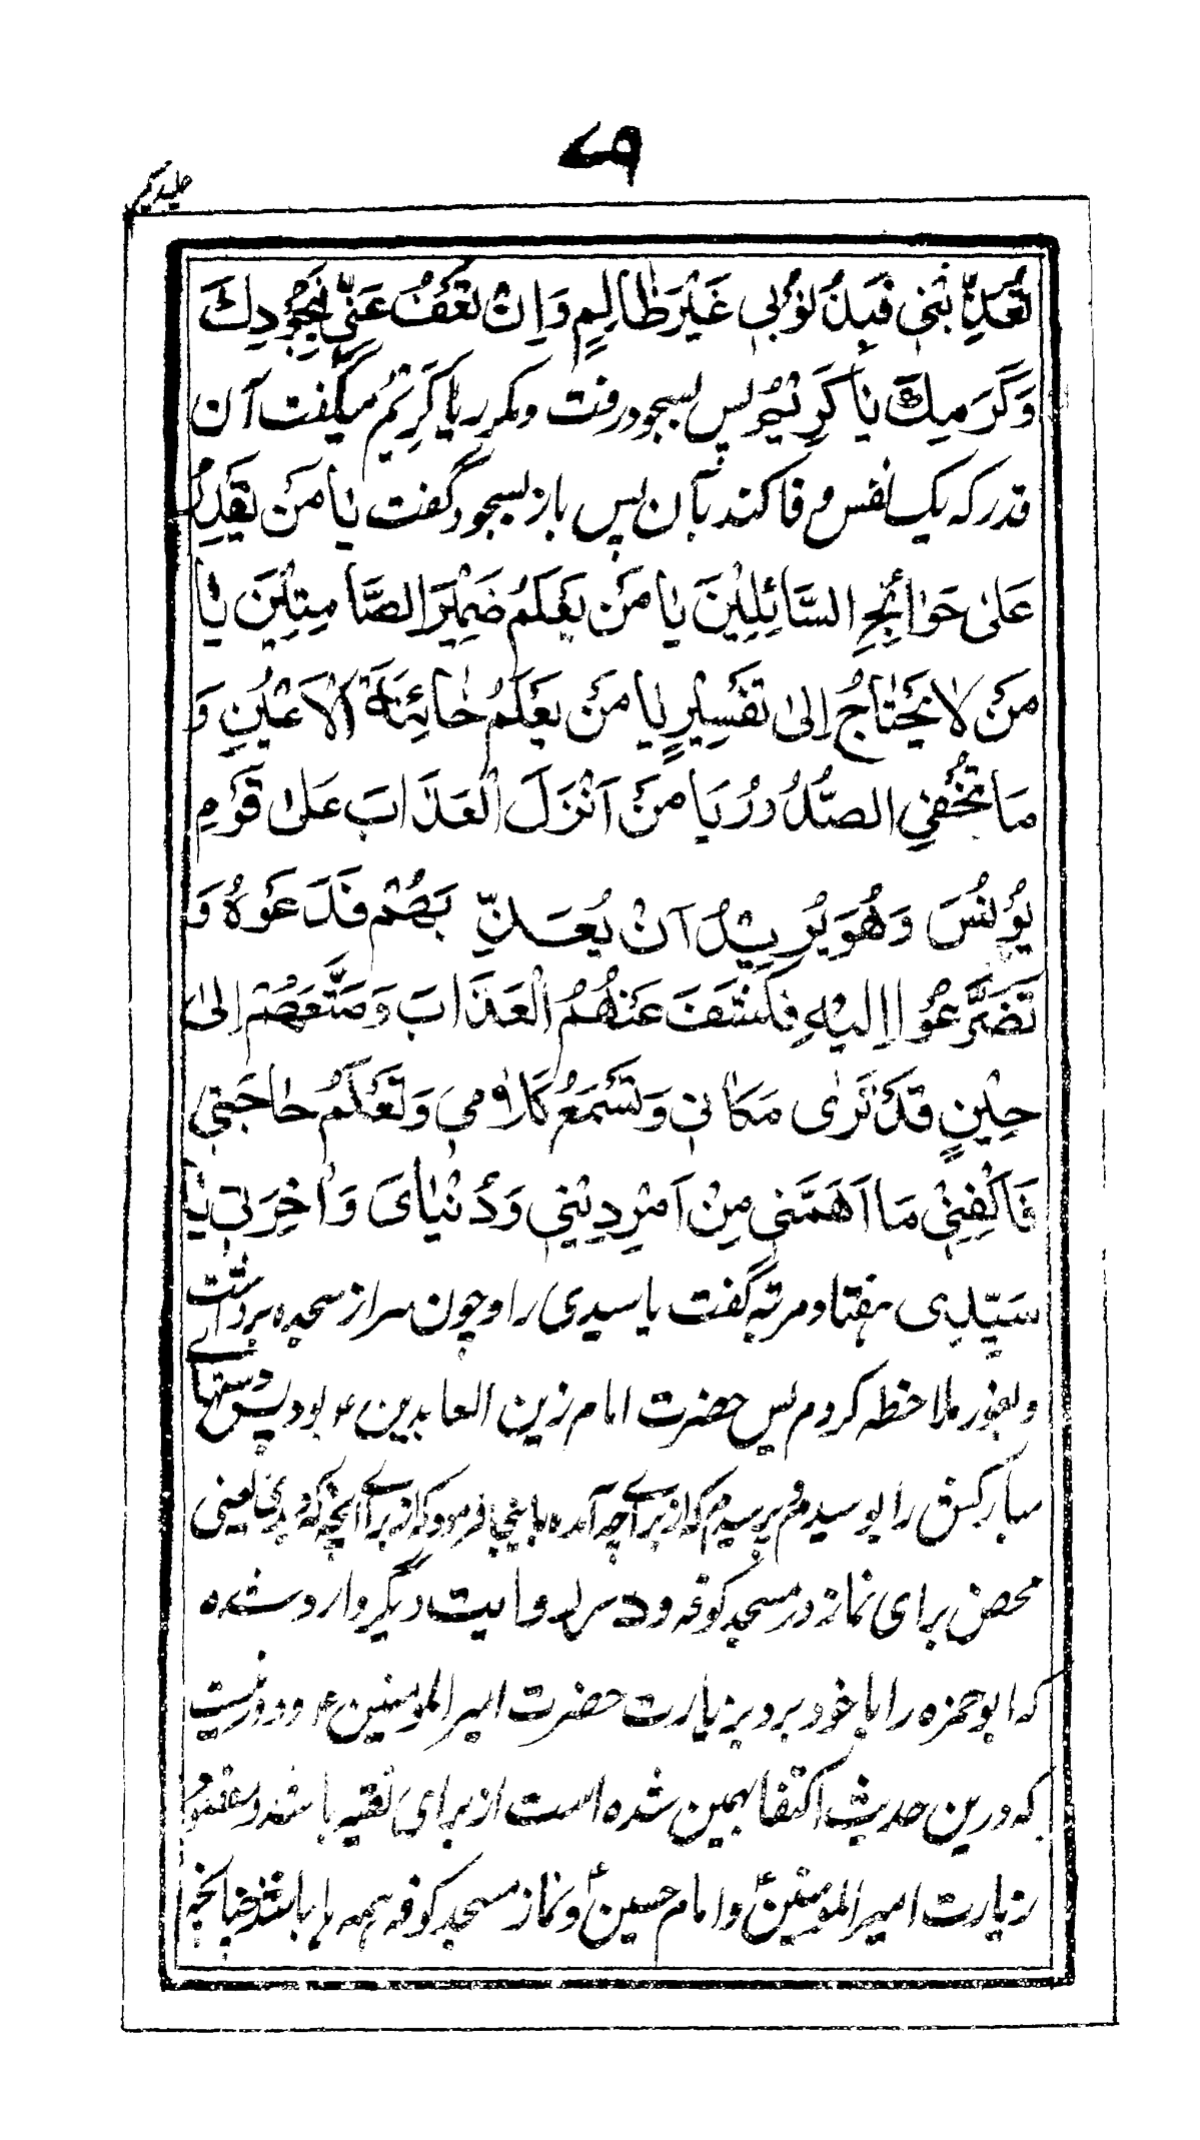 ۷۹
جلد یکم
تُعَذِّبْنِی فَبِذُنُوْبِی غَیْرَ ظَالِمٍ وَاِنْ تَعْفُ عَنِّی فَبِجُوْدِكَ
وَكَرَمِكَ یَا كَرِیْمُ پس بسجود رفت و مکرر یا كَرِیْمُ میگفت آن
قدر که یک نفس وفا کند بآن پس باز بسجود گفت یَا مَنْ یَقْدِرُ
عَلٰی حَوَائِجِ السَّائِلِیْنَ یَا مَنْ یَعْلَمُ ضَمِیْرَ الصَّامِتِیْنَ یَا
مَنْ لَا یَحْتَاجُ اِلٰی تَفْسِیْرٍ یَا مَنْ یَعْلَمُ خَائِنَةَ الْاَعْیُنِ وَ
مَا تُخْفِی الصُّدُوْرُ یَا مَنْ اَنْزَلَ الْعَذَابَ عَلٰی قَوْمِ
یُوْنُسَ وَهُوَ یُرِیْدُ اَنْ یُعَذِّبَهُمْ فَدَعَوْهُ وَ
تَضَرَّعُوْا اِلَیْهِ فَكَشَفَ عَنْهُمُ الْعَذَابَ وَمَتَّعَهُمْ اِلٰی
حِیْنٍ قَدْ تَرٰی مَكَانِی وَتَسْمَعُ كَلَامِی وَتَعْلَمُ حَاجَتِی
فَاكْفِنِیْ مَا اَهَمَّنِی مِنْ اَمْرِ دِیْنِی وَدُنْیَایَ وَاٰخِرَتِی یَا
سَیِّدِی هفتاد مرتبه گفت یا سیدی را و چون سر از سجده برداشت
و بغور ملاحظه کردم پس حضرت امام زین العابدین ع بود پس دستهاے
مبارکش را بوسیدم و پرسیدم که از براے چه آمده باینجا فرمود که از براے آنچه که دیدی یعنی
محض برای نماز در مسجد کوفه و در روایت دیگر وارد شده
که ابو حمزه را با خود برد بزیارت حضرت امیر المومنین ع و دور نیست
که درین حدیث اکتفا بهمین شده است از برای تقیه باشد و مقصود
زیارت امیر المومنینؑ و امام حسینؑ و نماز مسجد کوفه همه ها باشد چنانچه